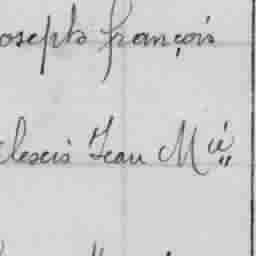 oseph françois
lexis Jean M ie